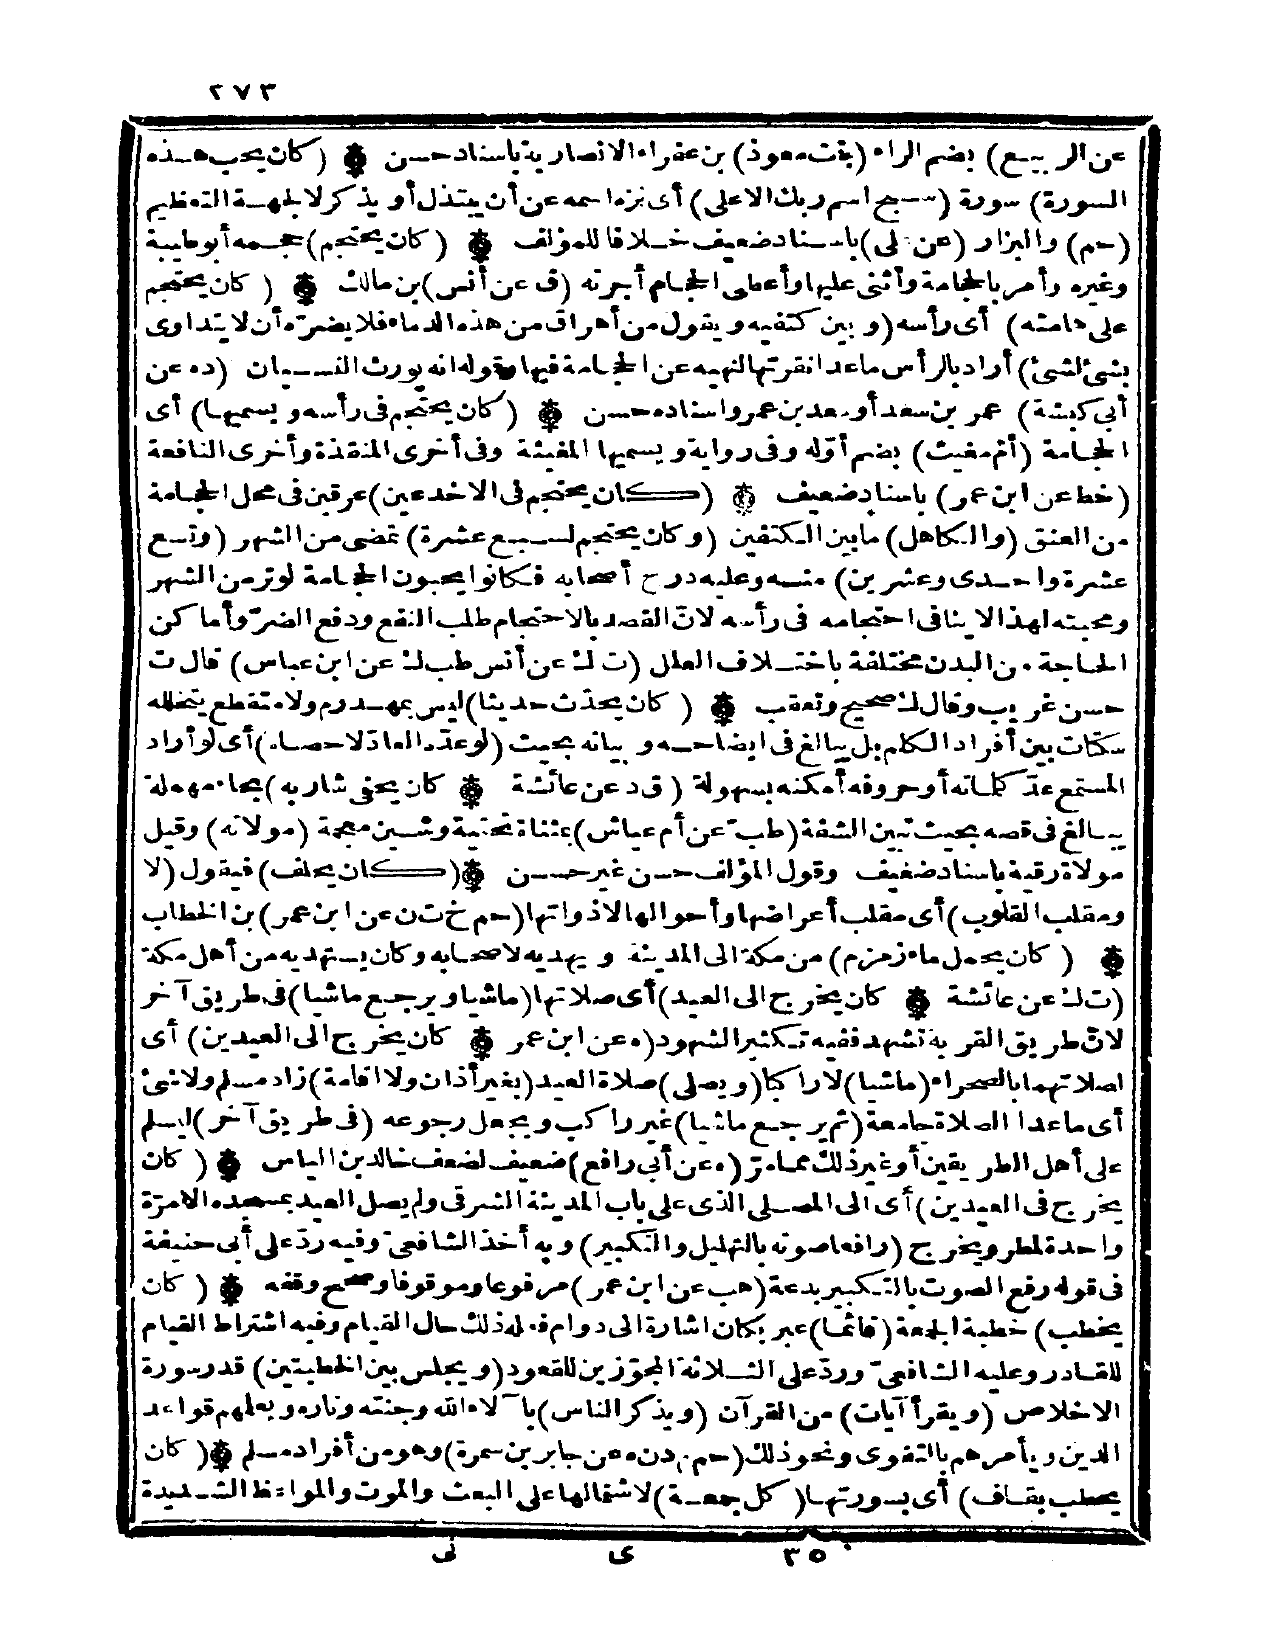 ٢٧٣
عن الربيع) بضم الراء (بنت معوذ) بن عفراء الانصارية باسناد حسن ۞ (كان يحب هذه
السورة) سورة (سبح اسم ربك الاعلى) أى نزه اسمه عن أن يبتذل أو يذكر لا لجهة التعظيم
(حم) والبزار (عن على) باسناد ضعيف خلافا للمؤلف ۞ (كان يحتجم) حجمه أبو طيبة
وغيره وأمر بالحجامة وأثنى عليها وأعطى الحجام أجرته (ق عن أنس) بن مالك ۞ (كان يحتجم
على هامته) أى رأسه (وبين كتفيه ويقول من أهراق من هذه الدماء فلا يضره أن لا يتداوى
بشئ لشئ) أراد بالرأس ماعدا نقرتها لنهيه عن الحجامة فيها بقوله انه يورث النسيان (د ه عن
أبى كبشة) عمر بن سعد أو سعد بن عمرو اسناده حسن ۞ (كان يحتجم فى رأسه ويسميها) أى
الحجامة (أم مغيث) بضم أوله وفى رواية ويسميها المغيثة وفى أخرى المنقذة وأخرى النافعة
(خط عن ابن عمر) باسناد ضعيف ۞ (كان يحتجم فى الاخدعين) عرقين فى محل الحجامة
من العنق (والكاهل) مابين الكتفين (وكان يحتجم لسبع عشرة) تمضى من الشهر (وتسع
عشرة واحدى وعشرين) منه وعليه درج أصحابه فكانوا يحبون الحجامة لوتر من الشهر
ومحبته لهذا لا ينافى احتجامه فى رأسه لان القصد بالاحتجام طلب النفع ودفع الضر وأماكن
الحاجة من البدن مختلفة باختلاف العلل (ت ك عن أنس طب ك عن ابن عباس) قال ت
حسن غريب وقال ك صحيح وتعقب ۞ (كان يحدث حديثا) ليس بمهذرم ولا متقطع يتخلله
سكتات بين أفراد الكلم بل يبالغ فى ايضاحه وبيانه بحيث (لو عده العاد لاحصاه) أى لو أراد
المستمع عد كلماته أو حروفه أمكنه بسهولة (ق د عن عائشة ۞ كان يحفى شاربه) بحاء مهملة
يبالغ فى قصه بحيث تبين الشفة (طب عن أم عياش) بمثناة تحتية وشين معجمة (مولاته) وقيل
مولاة رقية باسناد ضعيف وقول المؤلف حسن غير حسن ۞ (كان يحلف) فيقول (لا
ومقلب القلوب) أى مقلب أعراضها وأحوالها لا ذواتها (حم خ ت ن عن ابن عمر) بن الخطاب
۞ (كان يحمل ماء زمزم) من مكة الى المدينة ويهديه لاصحابه وكان يستهديه من أهل مكة
(ت ك عن عائشة ۞ كان يخرج الى العيد) أى صلاتها (ماشيا ويرجع ماشيا) فى طريق آخر
لان طريق القربة تشهد ففيه تكثير الشهود (ه عن ابن عمر ۞ كان يخرج الى العيدين) أى
لصلاتهما بالصحراء (ماشيا) لا راكبا (ويصلى) صلاة العيد (بغير أذان ولا اقامة) زاد مسلم ولا شئ
أى ماعدا الصلاة جامعة (ثم يرجع ماشيا) غير راكب ويجعل رجوعه (فى طريق آخر) ليسلم
على أهل الطريقين أو غير ذلك مما مر (ه عن أبى رافع) ضعيف لضعف خالد بن الياس ۞ (كان
يخرج فى العيدين) أى الى المصلى الذى على باب المدينة الشرقى ولم يصل العيد بمسجده الا مرة
واحدة لمطر ويخرج (رافعا صوته بالتهليل والتكبير) وبه أخذ الشافعى وفيه رد على أبى حنيفة
فى قوله رفع الصوت بالتكبير بدعة (هب عن ابن عمر) مرفوعا وموقوفا وصحح وقفه ۞ (كان
يخطب) خطبة الجمعة (قائما) عبر بكان اشارة الى دوام فعله ذلك حال القيام وفيه اشتراط القيام
للقادر وعليه الشافعى ورد على الثلاثة المجوزين للقعود (ويجلس بين الخطبتين) قدر سورة
الاخلاص (ويقرأ آيات) من القرآن (ويذكر الناس) بآلاء الله وجنته وناره ويعلمهم قواعد
الدين ويأمرهم بالتقوى ونحو ذلك (حم م د ن ه عن جابر بن سمرة) وهو من أفراد مسلم ۞ (كان
يخطب بقاف) أى بسورتها (كل جمعة) لاشتمالها على البعث والموت والمواعظ الشديدة
٣٥ ى نى